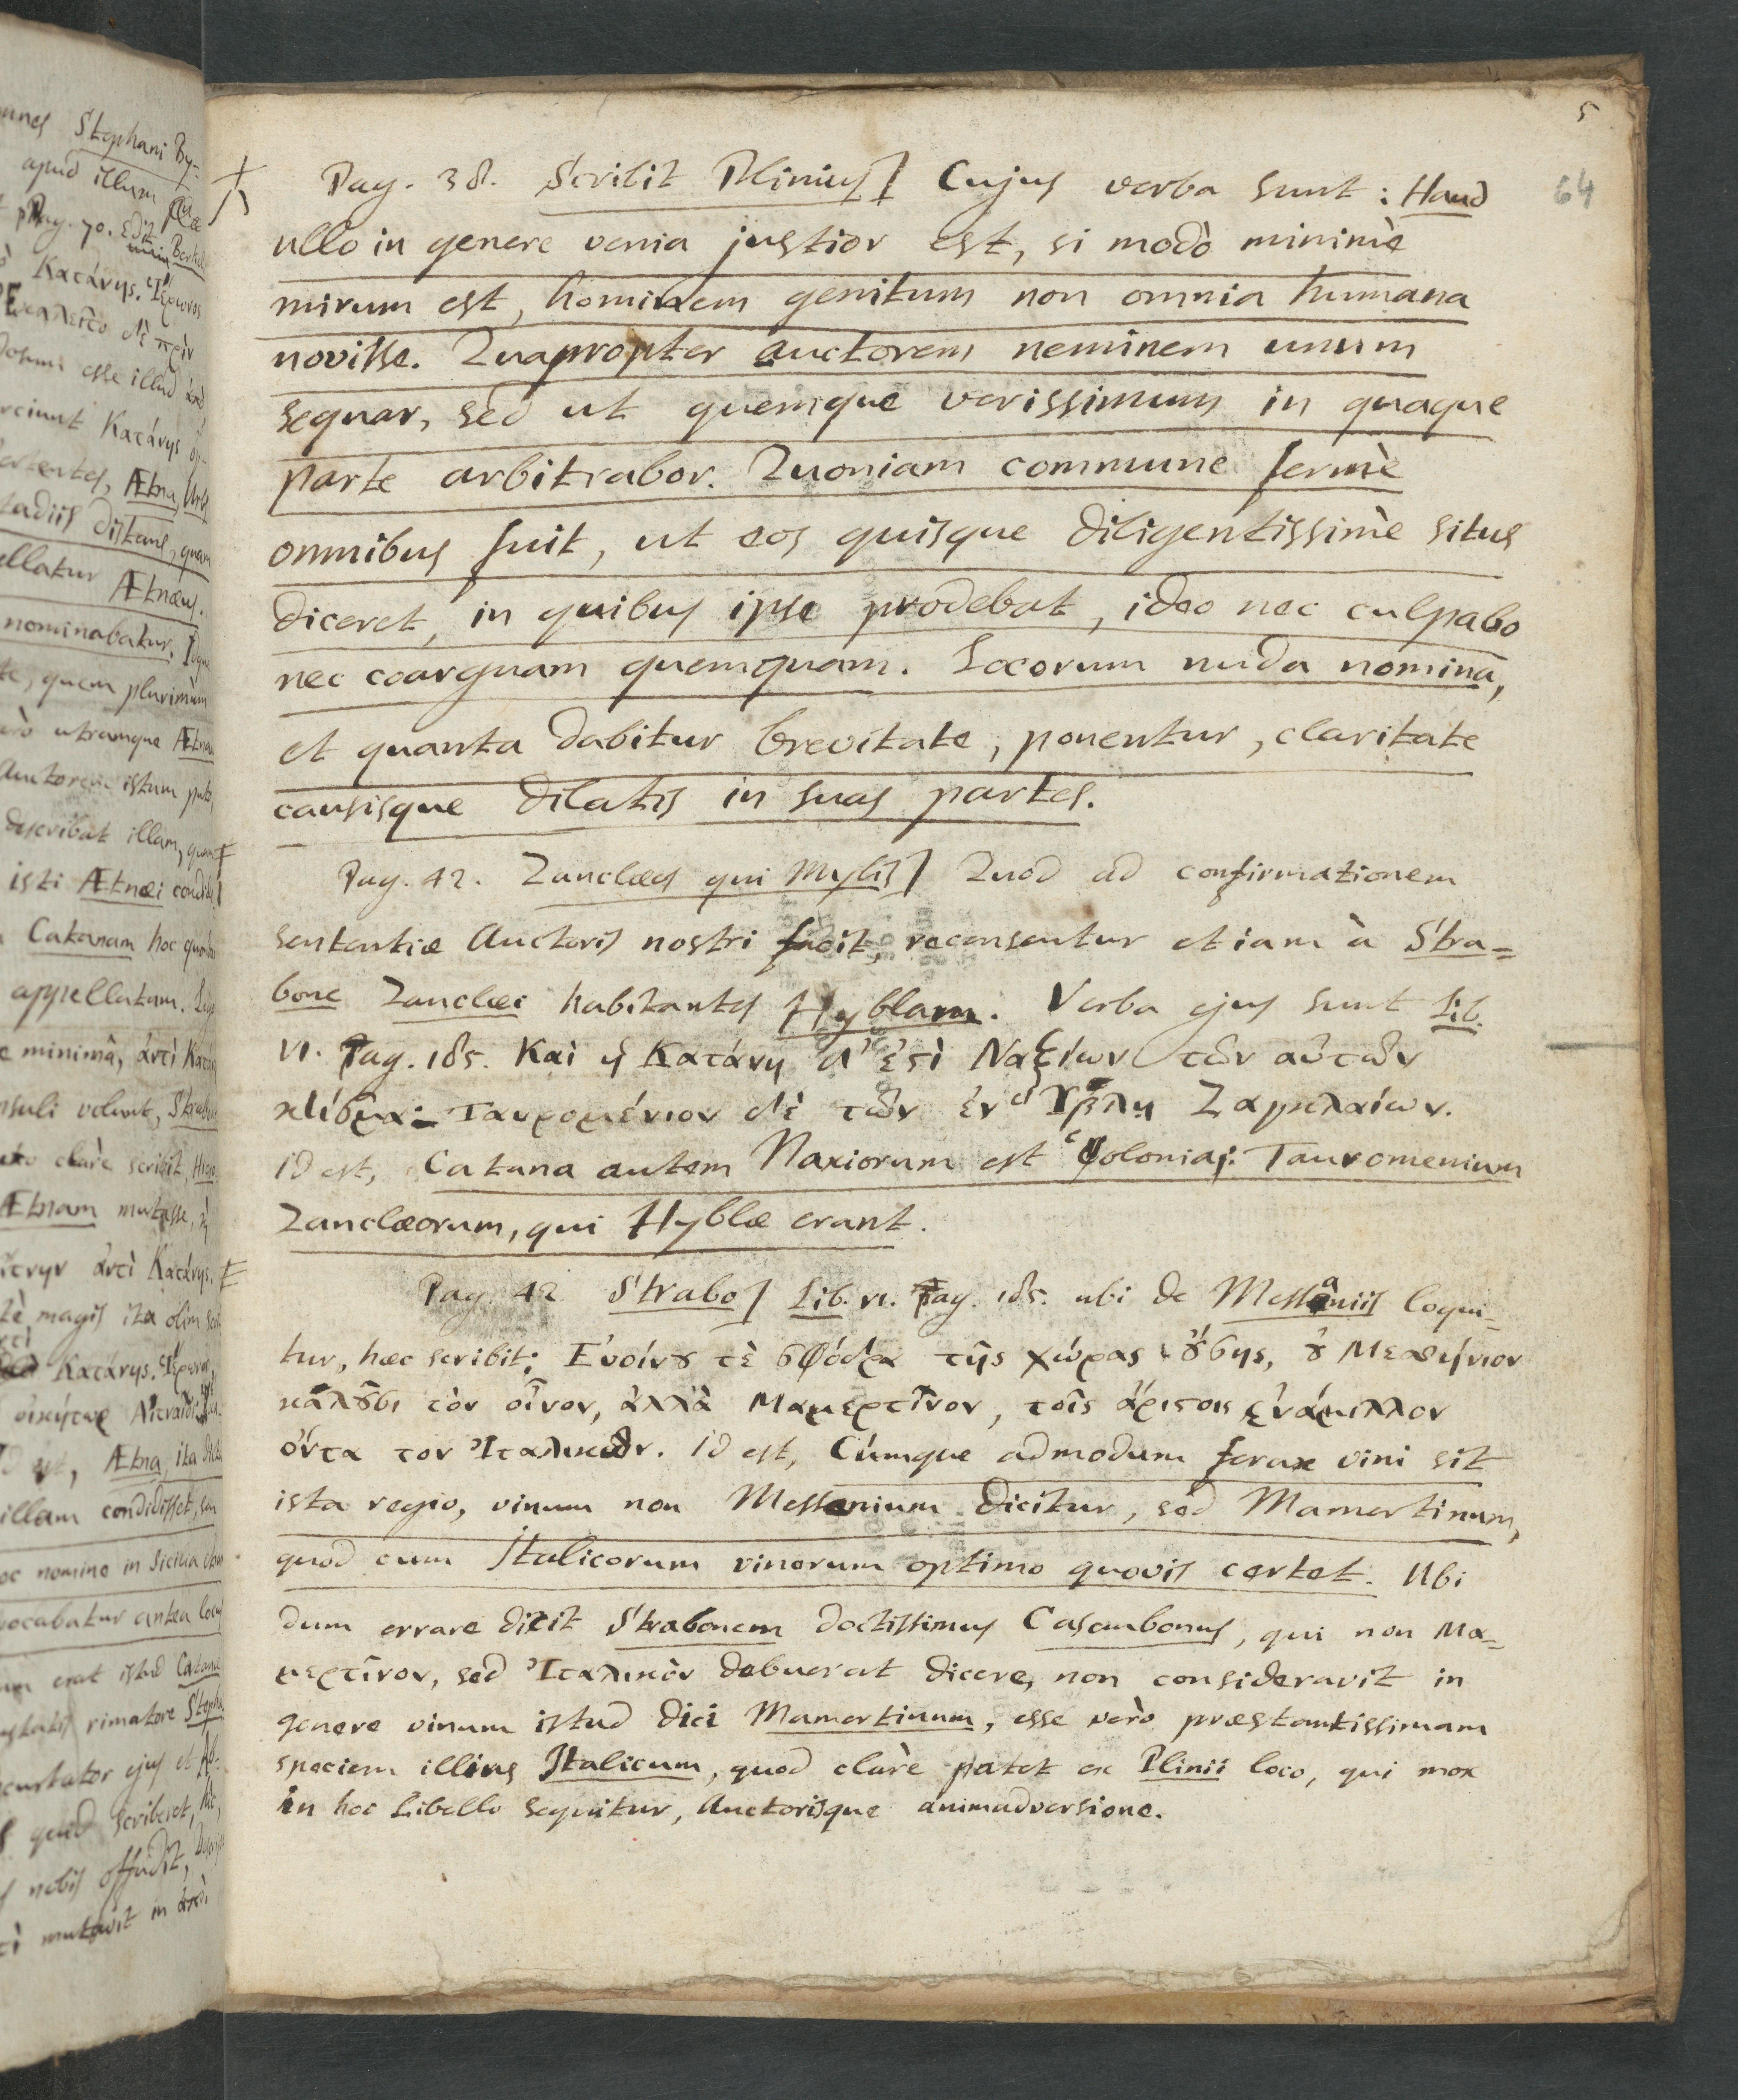 5
64
Pag. 38. Scribit Plinius] Cujus verba sunt: Haud
ullo in genere venia justior est, si modò minimè
mirum est, hominem genitum non omnia humana
novisse. Quapropter auctorem neminem unum
sequar, sed ut quemque verissimum in quaque
parte arbitrabor. Quoniam commune fermè
omnibus fuit, ut eos quisque diligentissimè situs
diceret, in quibus ipse prodebat, ideo nec culpabo
nec coarguam quemquam. Locorum nuda nomina,
et quanta dabitur brevitate, ponentur, claritate
causisque dilatis in suas partes.
Pag. 42. Zanclæos qui Mylis] Quod ad confirmationem
sententiæ Auctoris nostri facit, recensentur etiam à Stra=
bone Zanclæi habitantes Hyblam. Verba ejus sunt Lib.
VI. Pag. 185. Καὶ ἡ Κατάνη δ' ἐϛὶ Ναξίων τῶν αὐτῶν
κτίσμα: Ταυρομένιον δὲ τῶν ἐν Ὕβλῃ Ζαγκλαίων.
id est, Catana autem Naxiorum est colonia: Tauromenium
Zanclæorum, qui Hyblæ erant.
Pag. 42 Strabo] Lib. VI. Pag. 185. ubi de Messaniis loqui-
tur, hæc scribit: Εὐοίνȣ τὲ σφόδρα τῆς χώρας ȣ̓́σης, ȣ̓ Μεσσήνιον
καλȣ͂σι τὸν οἶνον, ἀλλὰ Μαμερτῖνον, τοῖς ἀρίϛοις ἐνάμιλλον
ὄντα τον Ἰταλικῶν. Id est, Cúmque admodum ferax vini sit
ista regio, vinum non Messenium dicitur, sed Mamertinum,
quod cum Italicorum vinorum optimo quovis certet. Ubi
dum errare dicit Strabonem doctissimus Casaubonus, qui non Μα=
μερτῖνον, sed Ἰταλικὸν debuerat dicere, non consideravit in
genere vinum istud dici Mamertinum, esse verò præstantissimam
speciem illius Italicum, quod clarè patet ex Plinii loco, qui mox
in hoc Libello sequitur, Auctorisque animadversione.